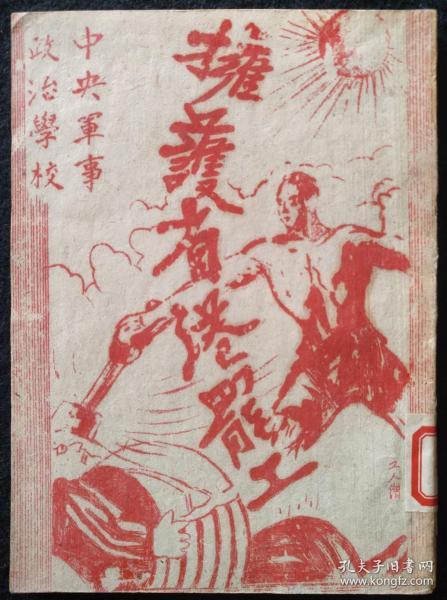 中央軍事
政治學校
擁護省港罷工
孔夫子旧书网
www.kongfz.com